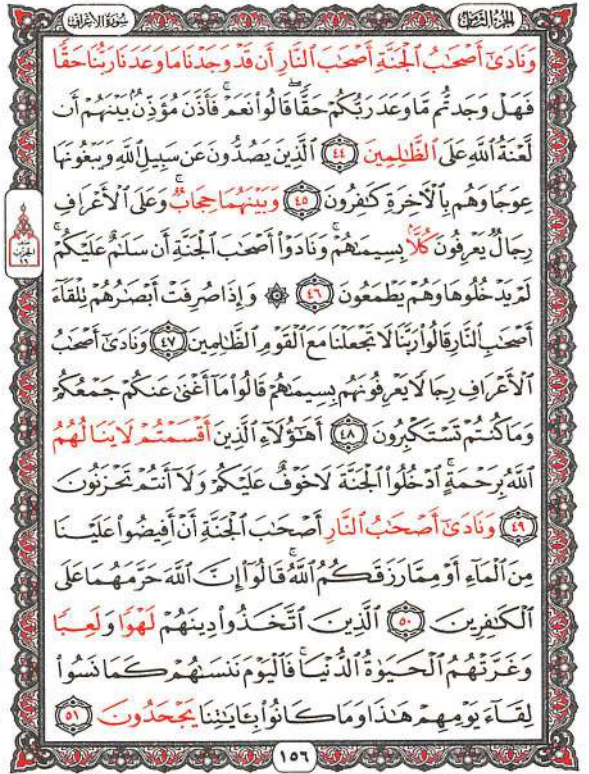 الجزء الثامن
سورة الأعراف
وَنَادَىٰٓ أَصۡحَٰبُ ٱلۡجَنَّةِ أَصۡحَٰبَ ٱلنَّارِ أَن قَدۡ وَجَدۡنَا مَا وَعَدَنَا رَبُّنَا حَقّٗا
فَهَلۡ وَجَدتُّم مَّا وَعَدَ رَبُّكُمۡ حَقّٗاۖ قَالُواْ نَعَمۡۚ فَأَذَّنَ مُؤَذِّنُۢ بَيۡنَهُمۡ أَن
لَّعۡنَةُ ٱللَّهِ عَلَى ٱلظَّٰلِمِينَ ٤٤ ٱلَّذِينَ يَصُدُّونَ عَن سَبِيلِ ٱللَّهِ وَيَبۡغُونَهَا
عِوَجٗا وَهُم بِٱلۡأٓخِرَةِ كَٰفِرُونَ ٤٥ وَبَيۡنَهُمَا حِجَابٞۚ وَعَلَى ٱلۡأَعۡرَافِ
رِجَالٞ يَعۡرِفُونَ كُلَّۢا بِسِيمَىٰهُمۡۚ وَنَادَوۡاْ أَصۡحَٰبَ ٱلۡجَنَّةِ أَن سَلَٰمٌ عَلَيۡكُمۡۚ
لَمۡ يَدۡخُلُوهَا وَهُمۡ يَطۡمَعُونَ ٤٦ ۞ وَإِذَا صُرِفَتۡ أَبۡصَٰرُهُمۡ تِلۡقَآءَ
أَصۡحَٰبِ ٱلنَّارِ قَالُواْ رَبَّنَا لَا تَجۡعَلۡنَا مَعَ ٱلۡقَوۡمِ ٱلظَّٰلِمِينَ ٤٧ وَنَادَىٰٓ أَصۡحَٰبُ
ٱلۡأَعۡرَافِ رِجَالٗا يَعۡرِفُونَهُم بِسِيمَىٰهُمۡ قَالُواْ مَآ أَغۡنَىٰ عَنكُمۡ جَمۡعُكُمۡ
وَمَا كُنتُمۡ تَسۡتَكۡبِرُونَ ٤٨ أَهَٰٓؤُلَآءِ ٱلَّذِينَ أَقۡسَمۡتُمۡ لَا يَنَالُهُمُ
ٱللَّهُ بِرَحۡمَةٍۚ ٱدۡخُلُواْ ٱلۡجَنَّةَ لَا خَوۡفٌ عَلَيۡكُمۡ وَلَآ أَنتُمۡ تَحۡزَنُونَ
٤٩ وَنَادَىٰٓ أَصۡحَٰبُ ٱلنَّارِ أَصۡحَٰبَ ٱلۡجَنَّةِ أَنۡ أَفِيضُواْ عَلَيۡنَا
مِنَ ٱلۡمَآءِ أَوۡ مِمَّا رَزَقَكُمُ ٱللَّهُۚ قَالُوٓاْ إِنَّ ٱللَّهَ حَرَّمَهُمَا عَلَى
ٱلۡكَٰفِرِينَ ٥٠ ٱلَّذِينَ ٱتَّخَذُواْ دِينَهُمۡ لَهۡوٗا وَلَعِبٗا
وَغَرَّتۡهُمُ ٱلۡحَيَوٰةُ ٱلدُّنۡيَاۚ فَٱلۡيَوۡمَ نَنسَىٰهُمۡ كَمَا نَسُواْ
لِقَآءَ يَوۡمِهِمۡ هَٰذَا وَمَا كَانُواْ بِـَٔايَٰتِنَا يَجۡحَدُونَ ٥١
١٥٦